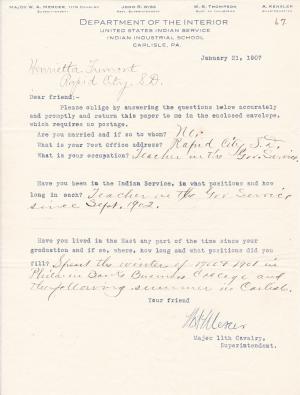 MAJOR W. A. MERCER, 11TH CAVALRY
SUPERINTENDENT.
JOHN R. WISE
ASST. SUPERINTENDENT
W. B. THOMPSON
A. KENSLER
QUARTERMASTER
67
DEPARTMENT OF THE INTERIOR
UNITED STATES INDIAN SERVICE
INDIAN INDUSTRIAL SCHOOL
CARLISLE, PA.
January 21, 1907
Henrietta Fremont
Rapid City, S.D.
Dear friend:-
Please oblige by answering the questions below accurately
and promptly and return this paper to me in the enclosed envelope,
which requires no postage.
Are you married and if so to whom? No.
What is your Post Office address? Rapid City S.D.
What is your occupation? Teacher in the Gov. Service.
Have you been in the Indian Service, in what positions and how
long in each? Teacher in the Gov Service
since Sept. 1902.
Have you lived in the East any part of the time since your
graduation and if so, where, how long and what positions did you
fill? Spent the winter of in
Phila in Banks Business College and
the following summer in Carlisle.
Your friend
W A Mercer
Major 11th Cavalry,
Superintendent.